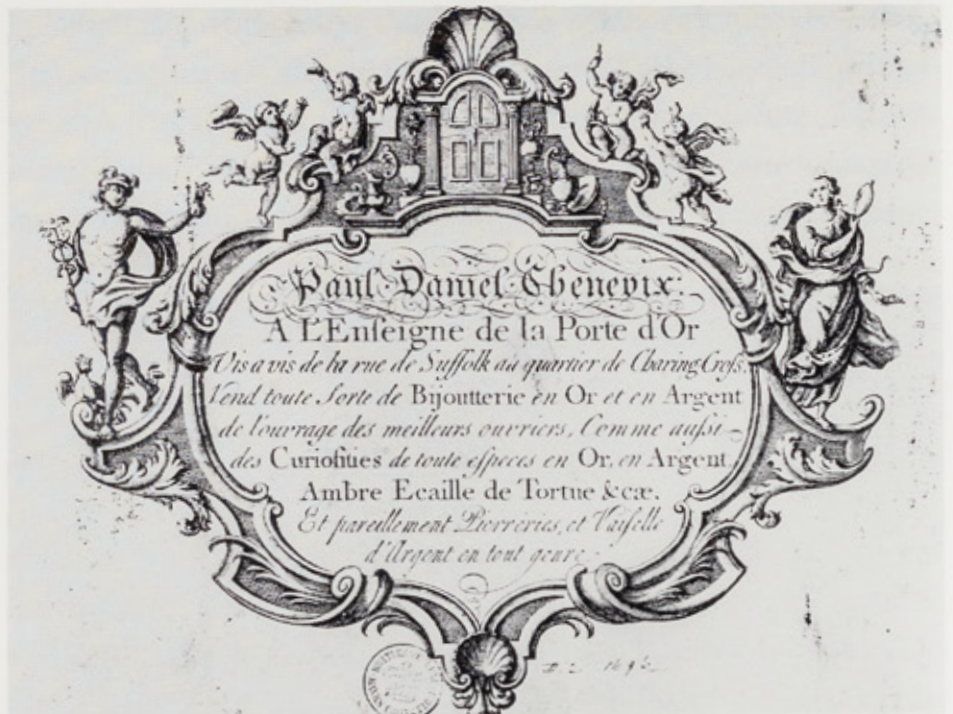 Paul Daniel Chenevix:
A L'Enseigne de la Porte d'Or
Vis a vis de la rue de Suffolk au quartier de Charing Cross.
Vend toute sorte de Bijoutterie en Or et en Argent
de l'ouvrage des meilleurs ouvriers, Comme aussi
des Curiosities de toute especes en Or, en Argent
Ambre Ecaille de Tortue &cæ.
Et pareillement Pierreries, et Vaiselle
d'Argent en tout genre